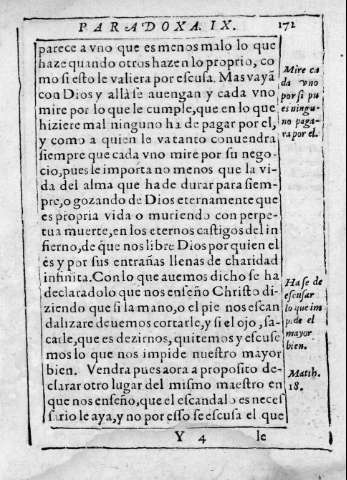 PARADOXA. IX. 172
parece a vno que es menos malo lo que
haze quando otros hazen lo proprio, co
mo si esto le valiera por escusa. Mas vayã
con Dios y alla se auengan y cada vno
mire por lo que le cumple, que en lo que
hiziere mal ninguno ha de pagar por el,
y como a quien le va tanto conuendra
siempre que cada vno mire por su nego-
cio, pues le importa no menos que la vi-
da del alma que ha de durar para siem-
pre, o gozando de Dios eternamente que
es propria vida o muriendo con perpe-
tua muerte, en los eternos castigos del in
fierno, de que nos libre Dios por quien el
es y por sus entrañas llenas de charidad
infinita. Con lo que auemos dicho se ha
declarado lo que nos enseño Christo di-
ziendo que si la mano, o el pie nos escan
dalizare deuemos cortarle, y si el ojo, sa-
carle, que es dezirnos, quitemos y escuse
mos lo que nos impide nuestro mayor
bien. Vendra pues aora a proposito de-
clarar otro lugar del mismo maestro en
que nos enseño, que el escandalo es neces
sario le aya, y no por esso se escusa el que
Y 4 le
Mire ca
da vno
por si pu
es ningu-
no paga-
ra por el.
Hase de
escusar
lo que im
pide el
mayor
bien.
Matth.
18.